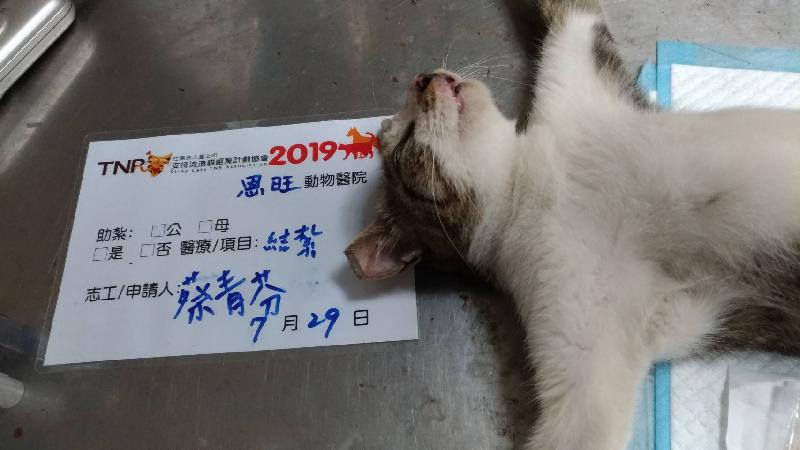 TNR 社團法人臺北市 支持流浪貓絕育計劃協會 2019
Stray Cats TNR Association
思旺 動物醫院
助紮: □公 □母
□是 □否 醫療/項目: 結紮
志工/申請人: 蔡青芬
7 月 29 日